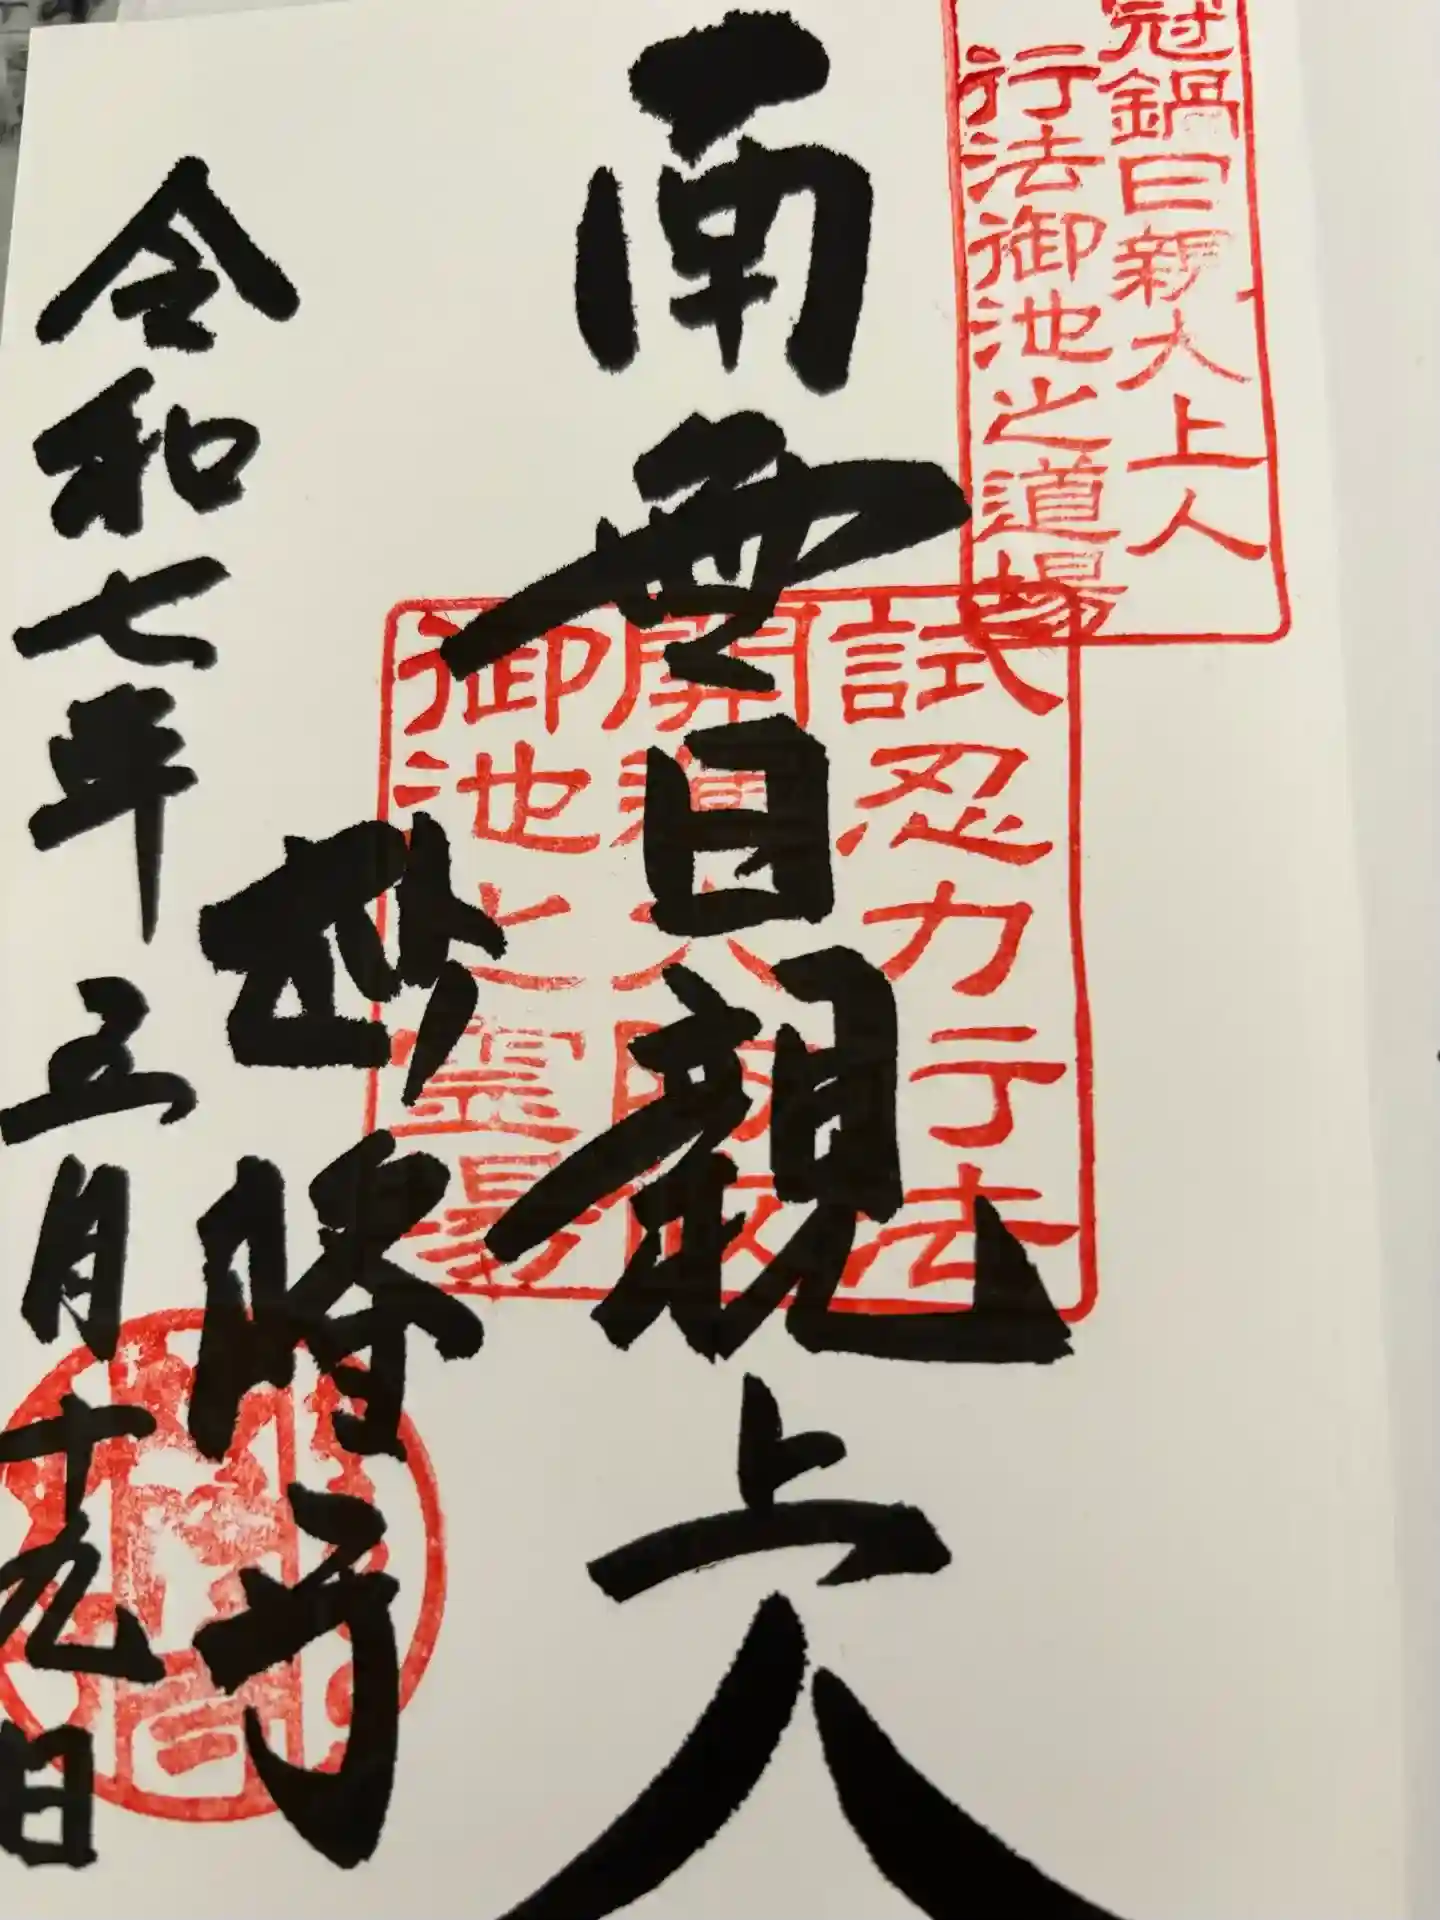 冠鍋日親大上人
行法御池之道場
南無日親上人
試忍力行法
開
御池之霊場
妙勝寺
令和七年五月十九日